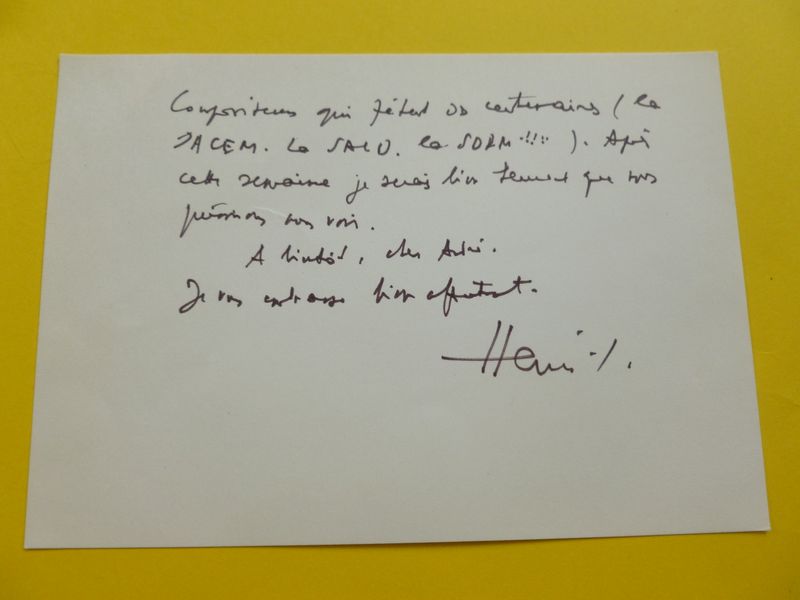 Compositeurs qui fêtent vos centenaires (la
SACEM. la SALD. la SDRM !!! ). Après
cette semaine je serais bien heureux que nous
puissions nous voir.
A bientôt, cher André.
Je vous embrasse bien affectueusement.
Henri